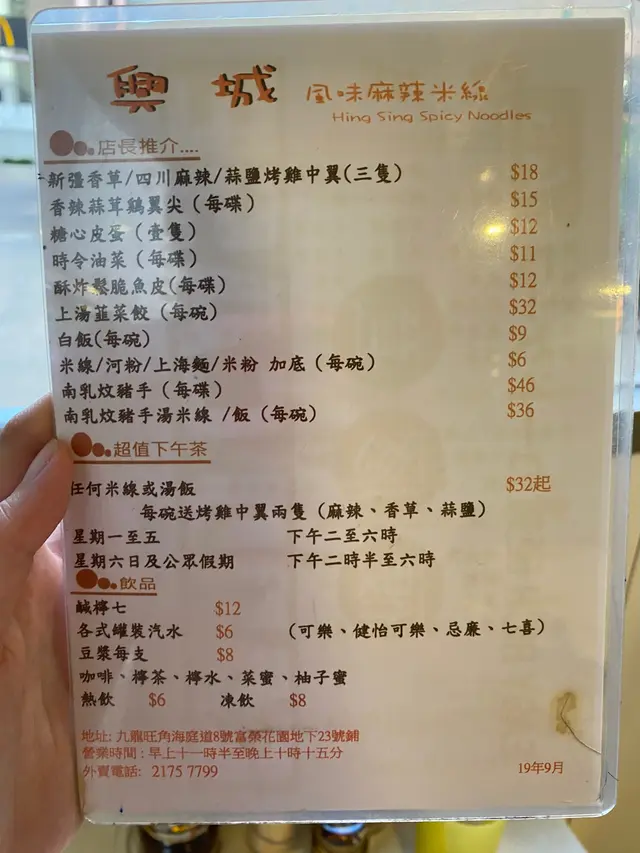 興 城 風味麻辣米線
Hing Sing Spicy Noodles
店長推介....
新疆香草/四川麻辣/蒜鹽烤雞中翼(三隻) $18
香辣蒜茸鷄翼尖（每碟） $15
糖心皮蛋（壹隻） $12
時令油菜（每碟） $11
酥炸鬆脆魚皮(每碟) $12
上湯韮菜餃（每碗） $32
白飯(每碗) $9
米線/河粉/上海麵/米粉 加底（每碗） $6
南乳炆豬手（每碟） $46
南乳炆豬手湯米線 /飯（每碗） $36
超值下午茶
任何米線或湯飯 $32起
每碗送烤雞中翼兩隻（麻辣、香草、蒜鹽）
星期一至五 下午二至六時
星期六日及公眾假期 下午二時半至六時
飲品
鹹檸七 $12
各式罐裝汽水 $6 （可樂、健怡可樂、忌廉、七喜）
豆漿每支 $8
咖啡、檸茶、檸水、菜蜜、柚子蜜
熱飲 $6 凍飲 $8
地址: 九龍旺角海庭道8號富榮花園地下23號鋪
營業時間 : 早上十一時半至晚上十時十五分
外賣電話: 2175 7799 19年9月